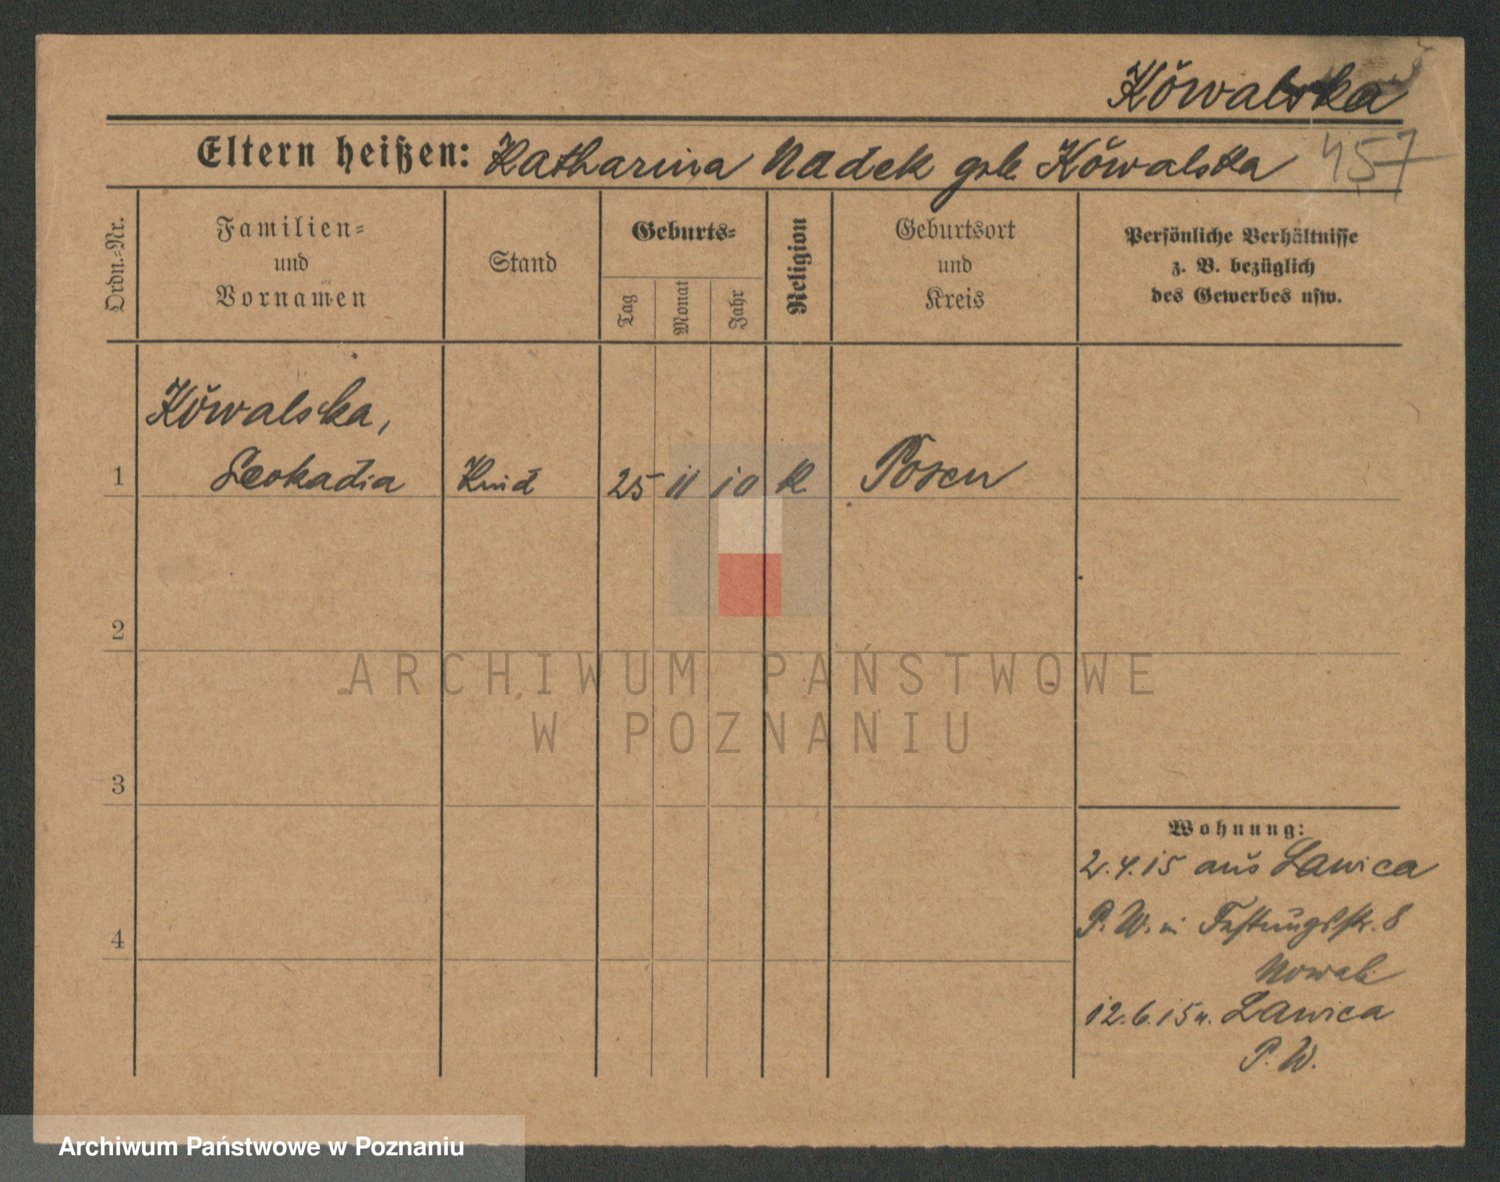 Kowalska
Eltern heißen: Katharina Nadek geb. Kowalska
457
Ordn.-Nr.
Familien- und Vornamen
Stand
Geburts-
Tag
Monat
Jahr
Religion
Geburtsort und Kreis
Persönliche Verhältnisse
z. B. bezüglich
des Gewerbes usw.
Kowalska,
1 Leokadia Kind 25 11 10 K Posen
2
3
4
Wohnung:
2.4.15 aus Lawica
P. W. in Festungsstr. 8
Nowak
12.6.15 n. Lawica
P. W.
ARCHIWUM PAŃSTWOWE
W POZNANIU
Archiwum Państwowe w Poznaniu